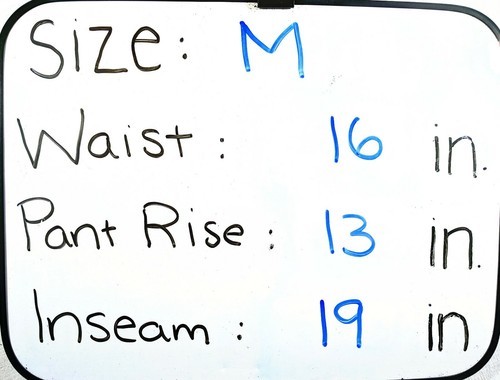 Size: M
Waist: 16 in.
Pant Rise: 13 in.
Inseam: 19 in